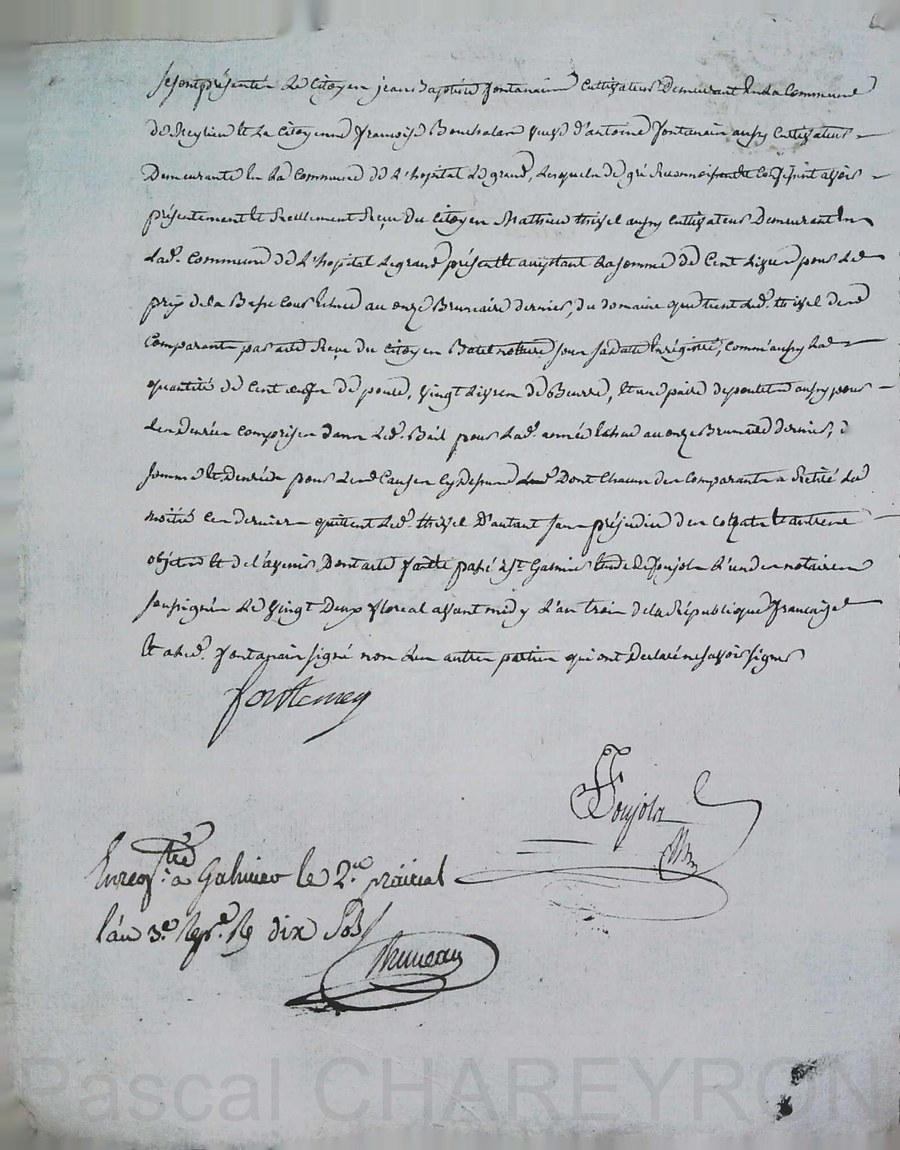 se sont présentés Le Citoyen jean Baptiste fontanain Cultivateur Demeurant En La Commune
de Meylieu Et La Citoyenne françoise veuve d'antoine fontanain aussy Cultivateur
Demeurante En La Commune de L'hopital Le grand, Lesquels de gré Reconnoissent et Confessent avoir
présentement Et Réellement Reçu du Citoyen Mathieu aussy Cultivateur Demeurant En
Lad. Commune de L'hopital Le grand présent Et acceptant La somme de Cent Livres pour Le
prix de la Basse Cour Echue au onze Brumaire dernier, du domaine que tient Led. des
Comparants par acte Reçu du Citoyen notaire sous sa date Enrégistré, Comm'aussy La
quantité de Cent œufs de poule, vingt Livres de Beurre, Et une paire de poulets aussy pour
Les denrées Comprises dans Led. Bail pour Lad. année Echue au onze Brumaire dernier,
somme Et Denrées pour Les Causes Cy Dessus Dont Chacun des Comparants a Retiré La
moitié Ces derniers quittent Led. D'autant sans préjudice des Et autres
objets Et de L'avenir Dont acte fait Et passé à St. Galmier Etude de foujols L'un des notaires
soussignés Le vingt Deux floreal avant midy L'an trois de la République française
Et a Led. fontanain signé non Les autres parties qui ont Declaré ne savoir signer
fontaney
foujols
Enregtré. a Galmier le 2. prairial
l'an 3.e Rép.e R dix Sols